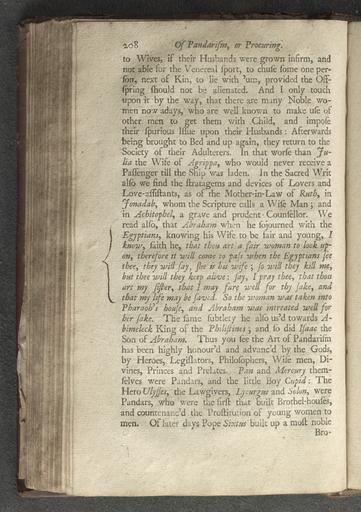 208 Of Pandarism, or Procuring.
to Wives, if their Husbands were grown infirm, and
not able for the Venereal sport, to chuse some one per-
son, next of Kin, to lie with 'um, provided the Off-
spring should not be alienated. And I only touch
upon it by the way, that there are many Noble wo-
men now adays, who are well known to make use of
other men to get them with Child, and impose
their spurious Issue upon their Husbands: Afterwards
being brought to Bed and up again, they return to the
Society of their Adulterers. In that worse than Ju-
lia the Wife of Agrippa, who would never receive a
Passenger till the Ship was laden. In the Sacred Writ
also we find the stratagems and devices of Lovers and
Love-assistants, as of the Mother-in-Law of Ruth, in
Jonadab, whom the Scripture calls a Wise Man; and
in Achitophel, a grave and prudent Counsellor. We
read also, that Abraham when he sojourned with the
Egyptians, knowing his Wife to be fair and young, I
know, saith he, that thou art a fair woman to look up-
on, therefore it will come to pass when the Egyptians see
thee, they will say, she is his wife; so will they kill me,
but thee will they keep alive: say, I pray thee, that thou
art my sister, that I may fare well for thy sake, and
that my life may be sav'd. So the woman was taken into
Pharaoh's house, and Abraham was intreated well for
her sake. The same subtlety he also us'd towards A-
bimeleck King of the Philistims; and so did Isaac the
Son of Abraham. Thus you see the Art of Pandarism
has been highly honour'd and advanc'd by the Gods,
by Heroes, Legislators, Philosophers, Wise men, Di-
vines, Princes and Prelates. Pan and Mercury them-
selves were Pandars, and the little Boy Cupid: The
Hero Ulysses, the Lawgivers, Lycurgus and Solon, were
Pandars, who were the first that built Brothel-houses,
and countenanc'd the Prostitution of young women to
men. Of later days Pope Sixtus built up a most noble
Bro-